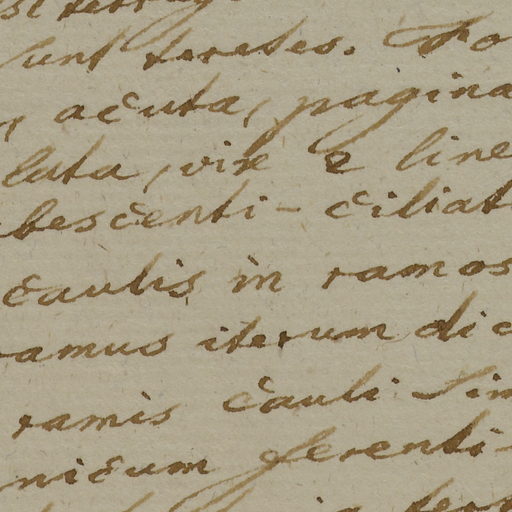 sunt teretes. Fo
, acuta, pagina
lata, vix e line
bescenti-ciliat
caulis in ramos
ramus iterum dic
ramis cauli sim
nicum ferenti-